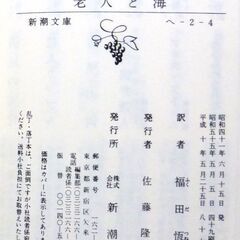 老人と海
新潮文庫
へ-2-4
昭和四十一年六月十五日発
昭和五十五年五月三十日四十九刷
平成十年五月二十五日八十
訳者 福田恆
発行者 佐藤隆
発行所 株式会社 新潮
郵便番号 一六二
東京都新宿区矢来
電話 編集部〇三(三二六
読者係〇三(三二六
振替 〇〇一四
価格はカバーに表示してあります
乱丁・落丁本は、ご面倒ですが小社読者係宛
ください。送料小社負担にてお取替えいたし